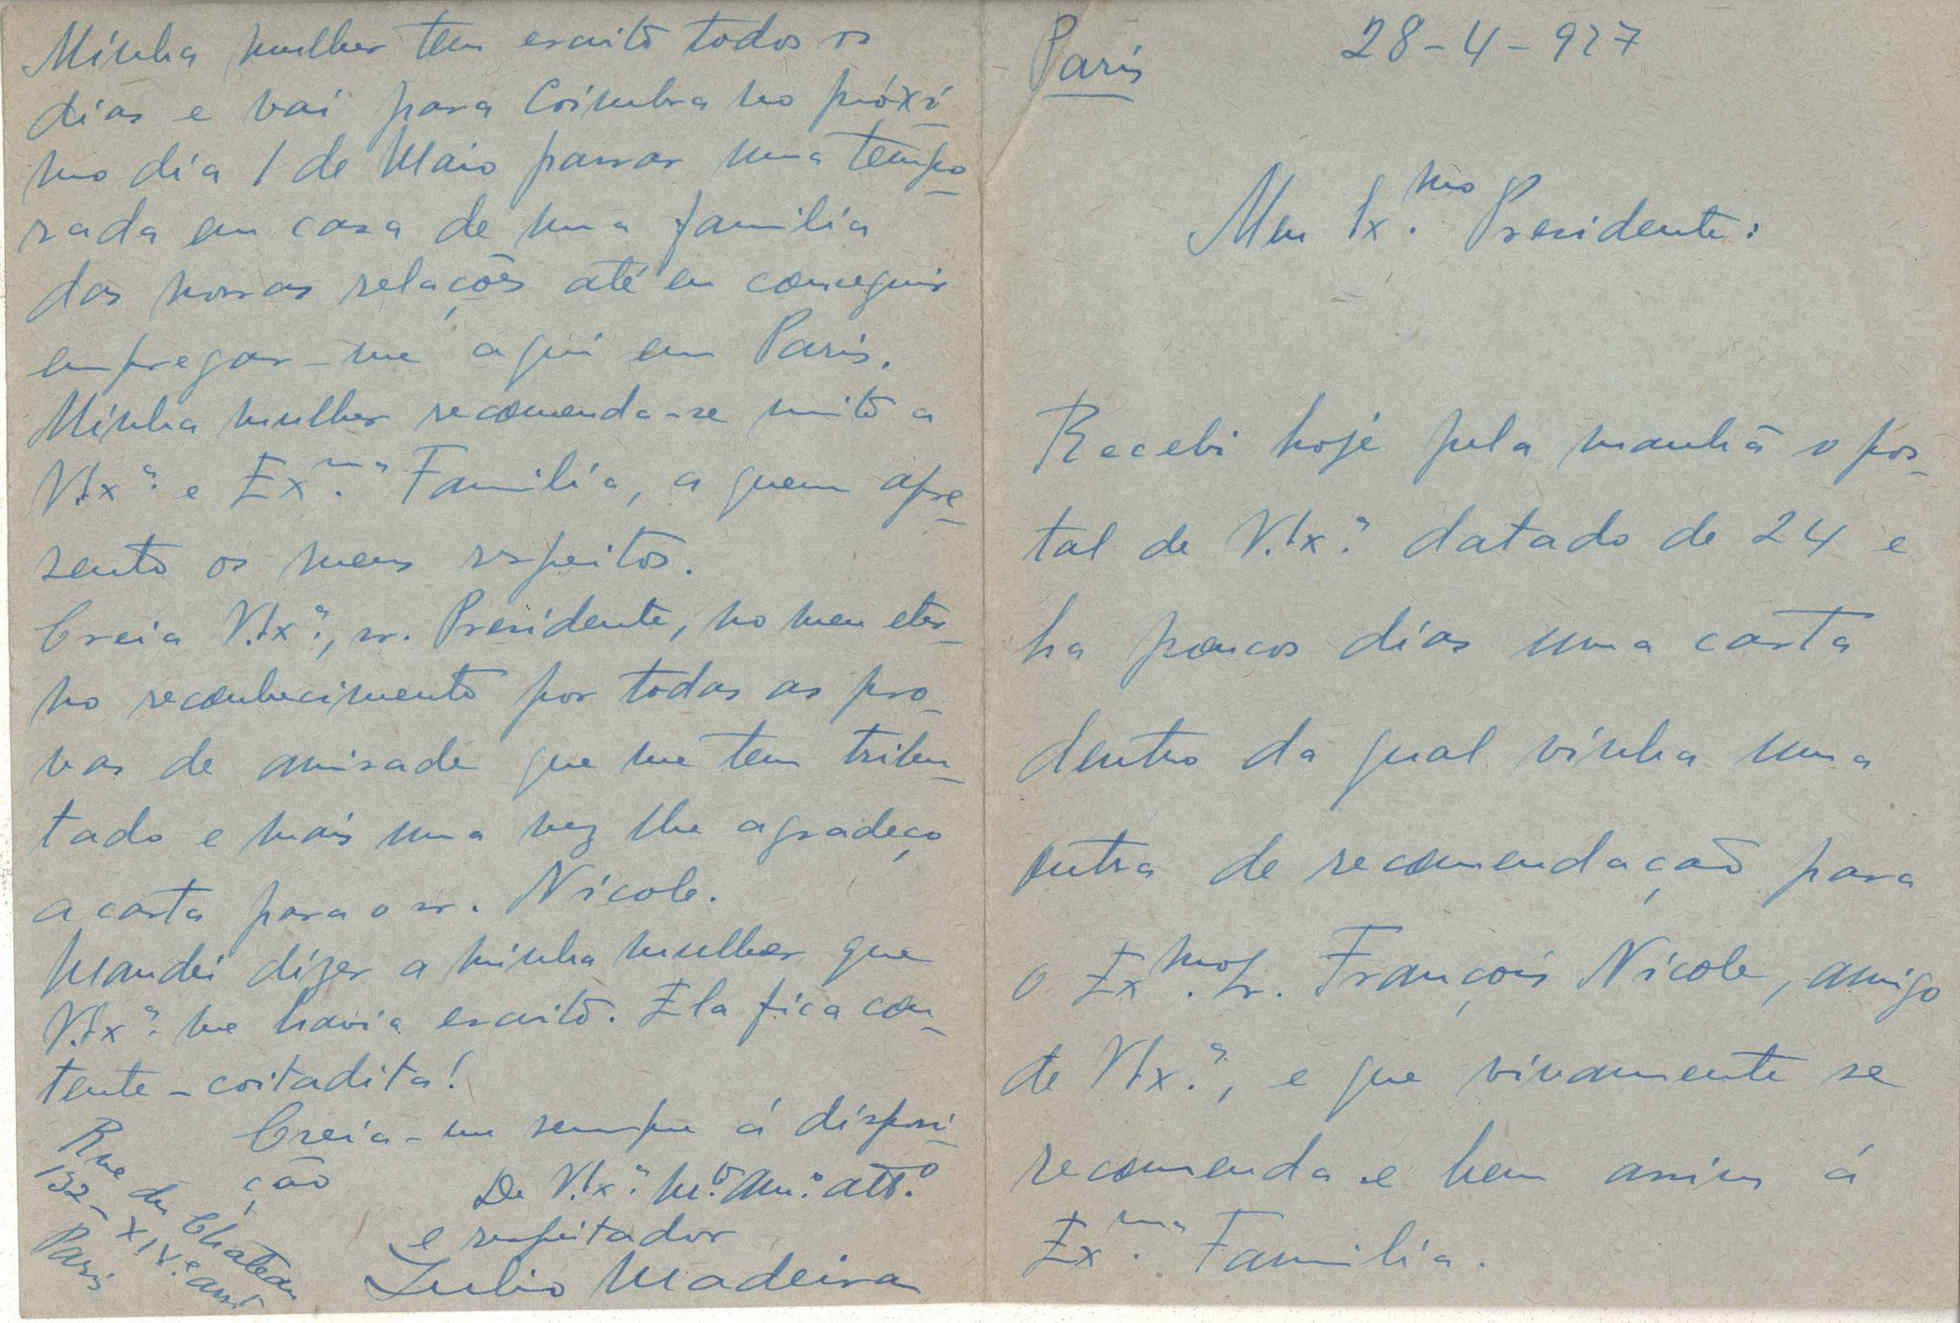 Paris 28-4-927
Meu Ex.mo Presidente:
Recebi hoje pela manhã o pos-
tal de V.Ex.ª datado de 24 e
ha poucos dias uma carta
dentro da qual vinha uma
outra de recomendação para
o Ex.mo Sr. François Nicole, amigo
de V.Ex.ª, e que vivamente se
recomenda e bem assim á
Ex.ma Familia.
Minha mulher tem escrito todos os
dias e vai para Coimbra no próxi-
mo dia 1 de Maio passar uma tempo-
rada em casa de uma familia
das nossas relações até eu conseguir
empregar-me aqui em Paris.
Minha mulher recomenda-se muito a
V.Ex.ª e Ex.ma Familia, a quem apre-
sento os meus respeitos.
Creia V.Ex.ª, sr. Presidente, no meu eter-
no reconhecimento por todas as pro-
vas de amisade que me tem tribu-
tado e mais uma vez lhe agradeço
a carta para o sr. Nicole.
Mandei dizer a minha mulher que
V.Ex.ª me havia escrito. Ela fica con-
tente - coitadita!
Creia-me sempre á disposi-
ção
De V.Ex.ª m.to am.o att.o
e respeitador
Julio Madeira
Rue du Chateau
132 - XIV.e arr.t
Paris